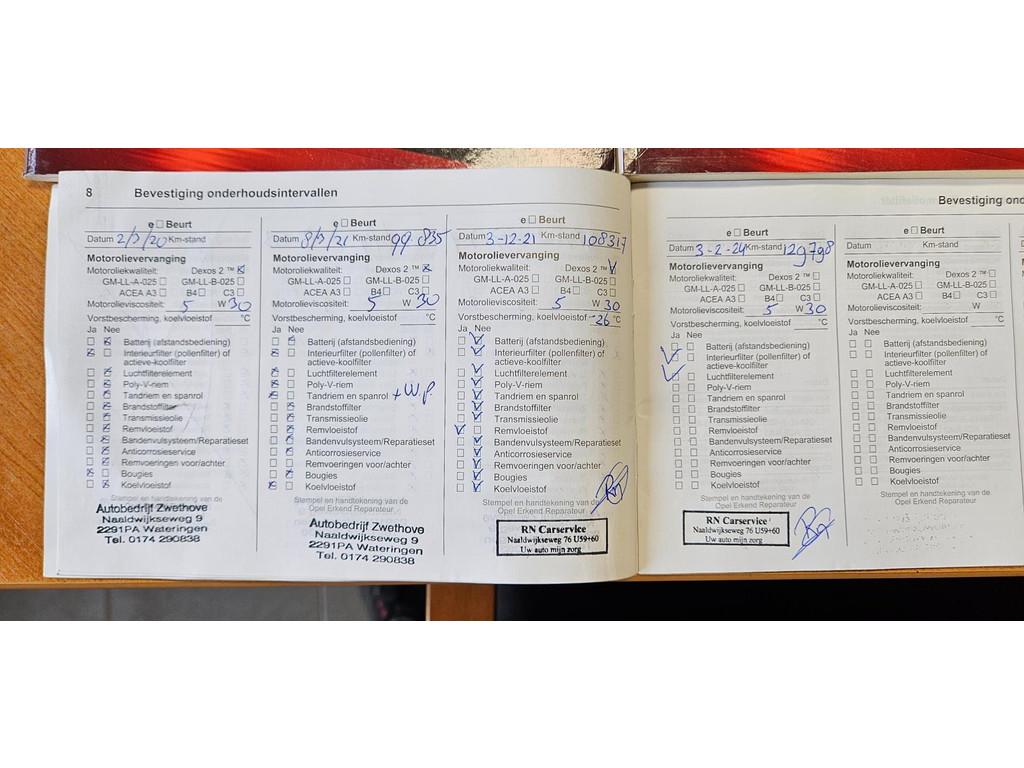 8 Bevestiging onderhoudsintervallen
e □ Beurt
Datum 2/3/20 Km-stand
Motorolievervanging
Motoroliekwaliteit: Dexos 2 ™ ☒
GM-LL-A-025 □ GM-LL-B-025 □
ACEA A3 □ B4 □ C3 □
Motorolieviscositeit: 5 W 30
Vorstbescherming, koelvloeistof °C
Ja Nee
Batterij (afstandsbediening)
Interieurfilter (pollenfilter) of
actieve-koolfilter
Luchtfilterelement
Poly-V-riem
Tandriem en spanrol
Brandstoffilter
Transmissieolie
Remvloeistof
Bandenvulsysteem/Reparatieset
Anticorrosieservice
Remvoeringen voor/achter
Bougies
Koelvloeistof
Stempel en handtekening van de
Opel Erkend Reparateur
Autobedrijf Zwethove
Naaldwijkseweg 9
2291PA Wateringen
Tel. 0174 290838
e □ Beurt
Datum 8/3/21 Km-stand 99 835
Motorolievervanging
Motoroliekwaliteit: Dexos 2 ™ ☒
GM-LL-A-025 □ GM-LL-B-025 □
ACEA A3 □ B4 □ C3 □
Motorolieviscositeit: 5 W 30
Vorstbescherming, koelvloeistof °C
Ja Nee
Batterij (afstandsbediening)
Interieurfilter (pollenfilter) of
actieve-koolfilter
Luchtfilterelement
Poly-V-riem
Tandriem en spanrol + W.P.
Brandstoffilter
Transmissieolie
Remvloeistof
Bandenvulsysteem/Reparatieset
Anticorrosieservice
Remvoeringen voor/achter
Bougies
Koelvloeistof
Stempel en handtekening van de
Opel Erkend Reparateur
Autobedrijf Zwethove
Naaldwijkseweg 9
2291PA Wateringen
Tel. 0174 290838
e □ Beurt
Datum 3-12-21 Km-stand 108317
Motorolievervanging
Motoroliekwaliteit: Dexos 2 ™ V
GM-LL-A-025 □ GM-LL-B-025 □
ACEA A3 □ B4 □ C3 □
Motorolieviscositeit: 5 W 30
Vorstbescherming, koelvloeistof -26 °C
Ja Nee
Batterij (afstandsbediening)
Interieurfilter (pollenfilter) of
actieve-koolfilter
Luchtfilterelement
Poly-V-riem
Tandriem en spanrol
Brandstoffilter
Transmissieolie
Remvloeistof
Bandenvulsysteem/Reparatieset
Anticorrosieservice
Remvoeringen voor/achter
Bougies
Koelvloeistof
Stempel en handtekening van de
Opel Erkend Reparateur
RN Carservice
Naaldwijkseweg 76 U59+60
Uw auto mijn zorg
Bevestiging ond
e □ Beurt
Datum 3-2-24 Km-stand 129798
Motorolievervanging
Motoroliekwaliteit: Dexos 2 ™ □
GM-LL-A-025 □ GM-LL-B-025 □
ACEA A3 □ B4 □ C3 □
Motorolieviscositeit: 5 W 30
Vorstbescherming, koelvloeistof °C
Ja Nee
Batterij (afstandsbediening)
Interieurfilter (pollenfilter) of
actieve-koolfilter
Luchtfilterelement
Poly-V-riem
Tandriem en spanrol
Brandstoffilter
Transmissieolie
Remvloeistof
Bandenvulsysteem/Reparatieset
Anticorrosieservice
Remvoeringen voor/achter
Bougies
Koelvloeistof
Stempel en handtekening van de
Opel Erkend Reparateur
RN Carservice
Naaldwijkseweg 76 U59+60
Uw auto mijn zorg
e □ Beurt
Datum Km-stand
Motorolievervanging
Motoroliekwaliteit: Dexos 2 ™ □
GM-LL-A-025 □ GM-LL-B-025 □
ACEA A3 □ B4 □ C3 □
Motorolieviscositeit: W
Vorstbescherming, koelvloeistof °C
Ja Nee
Batterij (afstandsbediening)
Interieurfilter (pollenfilter) of
actieve-koolfilter
Luchtfilterelement
Poly-V-riem
Tandriem en spanrol
Brandstoffilter
Transmissieolie
Remvloeistof
Bandenvulsysteem/Reparatieset
Anticorrosieservice
Remvoeringen voor/achter
Bougies
Koelvloeistof